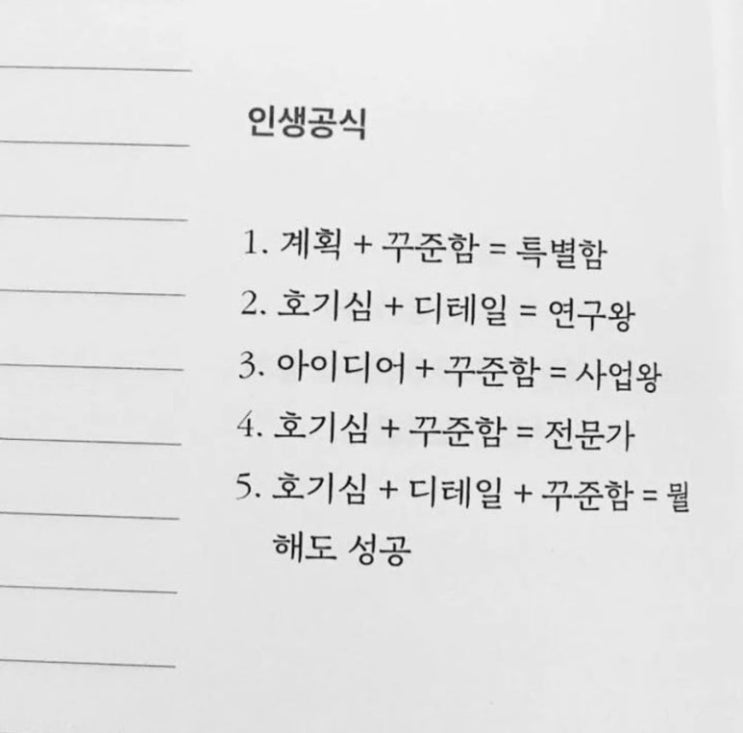 인생공식
1. 계획 + 꾸준함 = 특별함
2. 호기심 + 디테일 = 연구왕
3. 아이디어 + 꾸준함 = 사업왕
4. 호기심 + 꾸준함 = 전문가
5. 호기심 + 디테일 + 꾸준함 = 뭘
해도 성공